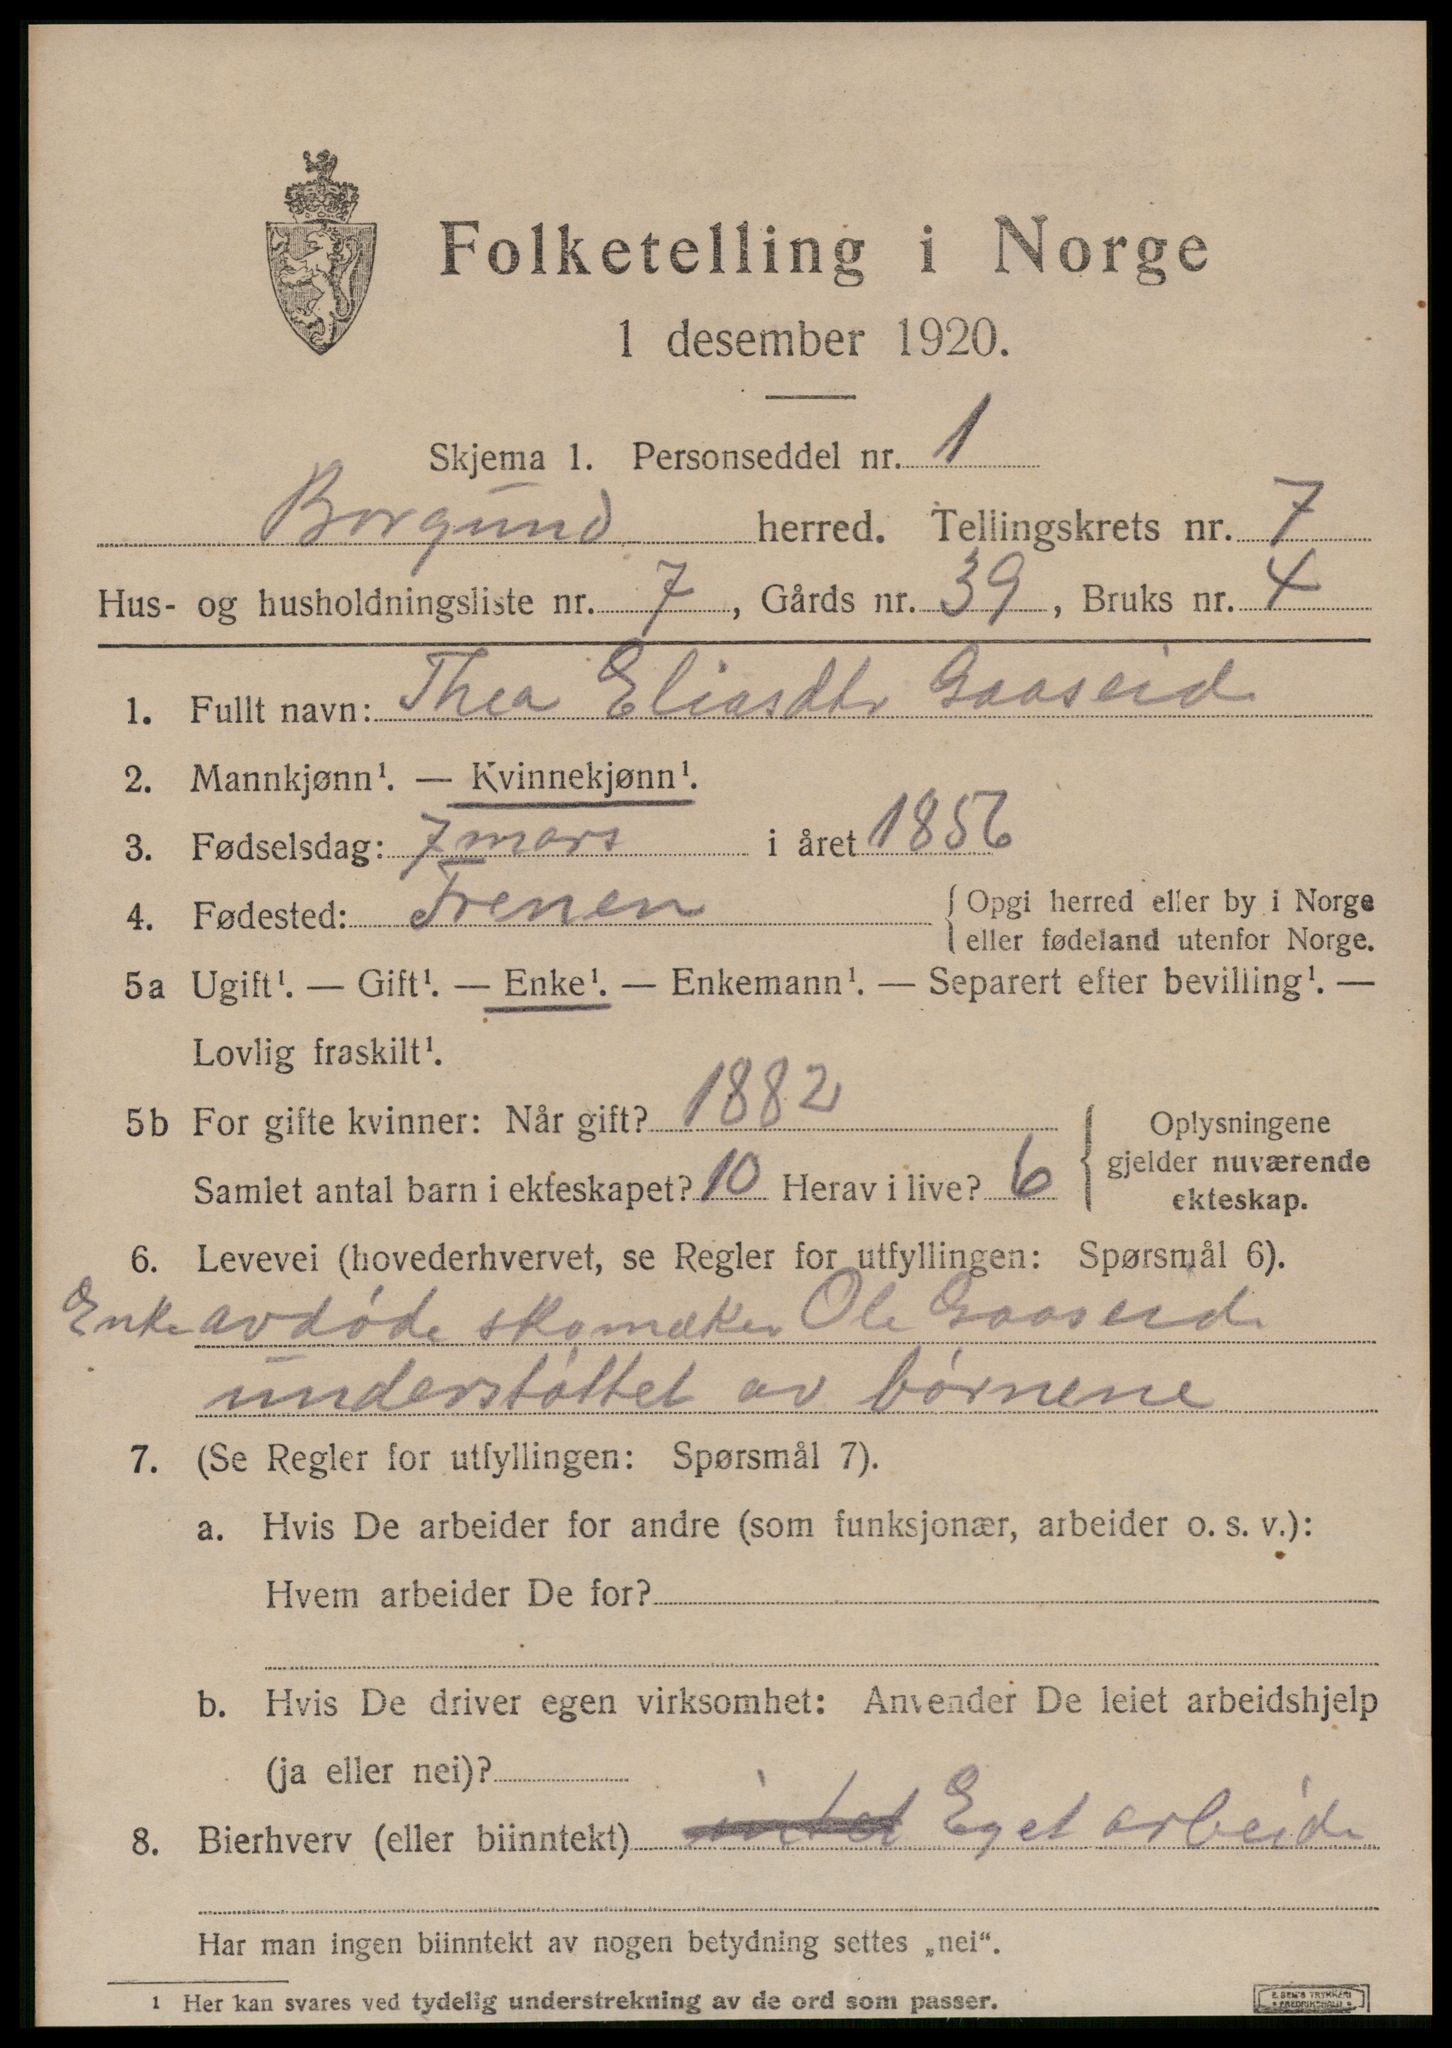 Folketelling i Norge
1 desember 1920.
Skjema 1. Personseddel nr. 1
Borgund herred. Tellingskrets nr. 7
Hus- og husholdningsliste nr. 7, Gårds nr. 39, Bruks nr. 4
1. Fullt navn: Thea Eliasdtr Gaaseid
2. Mannkjønn¹. — Kvinnekjønn¹.
3. Fødselsdag: 7 mars i året 1856
4. Fødested: Frenen { Opgi herred eller by i Norge
eller fødeland utenfor Norge.
5a Ugift¹. — Gift¹. — Enke¹. — Enkemann¹. — Separert efter bevilling¹. —
Lovlig fraskilt¹.
5b For gifte kvinner: Når gift? 1882
Samlet antal barn i ekteskapet? 10 Herav i live? 6
{ Oplysningene
gjelder nuværende
ekteskap.
6. Levevei (hovederhvervet, se Regler for utfyllingen: Spørsmål 6).
Enke avdøde skomaker Ole Gaaseid
understøttet av børnene
7. (Se Regler for utfyllingen: Spørsmål 7).
a. Hvis De arbeider for andre (som funksjonær, arbeider o. s. v.):
Hvem arbeider De for?
b. Hvis De driver egen virksomhet: Anvender De leiet arbeidshjelp
(ja eller nei)?
8. Bierhverv (eller biinntekt) intet Eget arbeide
Har man ingen biinntekt av nogen betydning settes „nei“.
1 Her kan svares ved tydelig understrekning av de ord som passer.
E. SEM'S TRYKKERI
FREDRIKSHALD